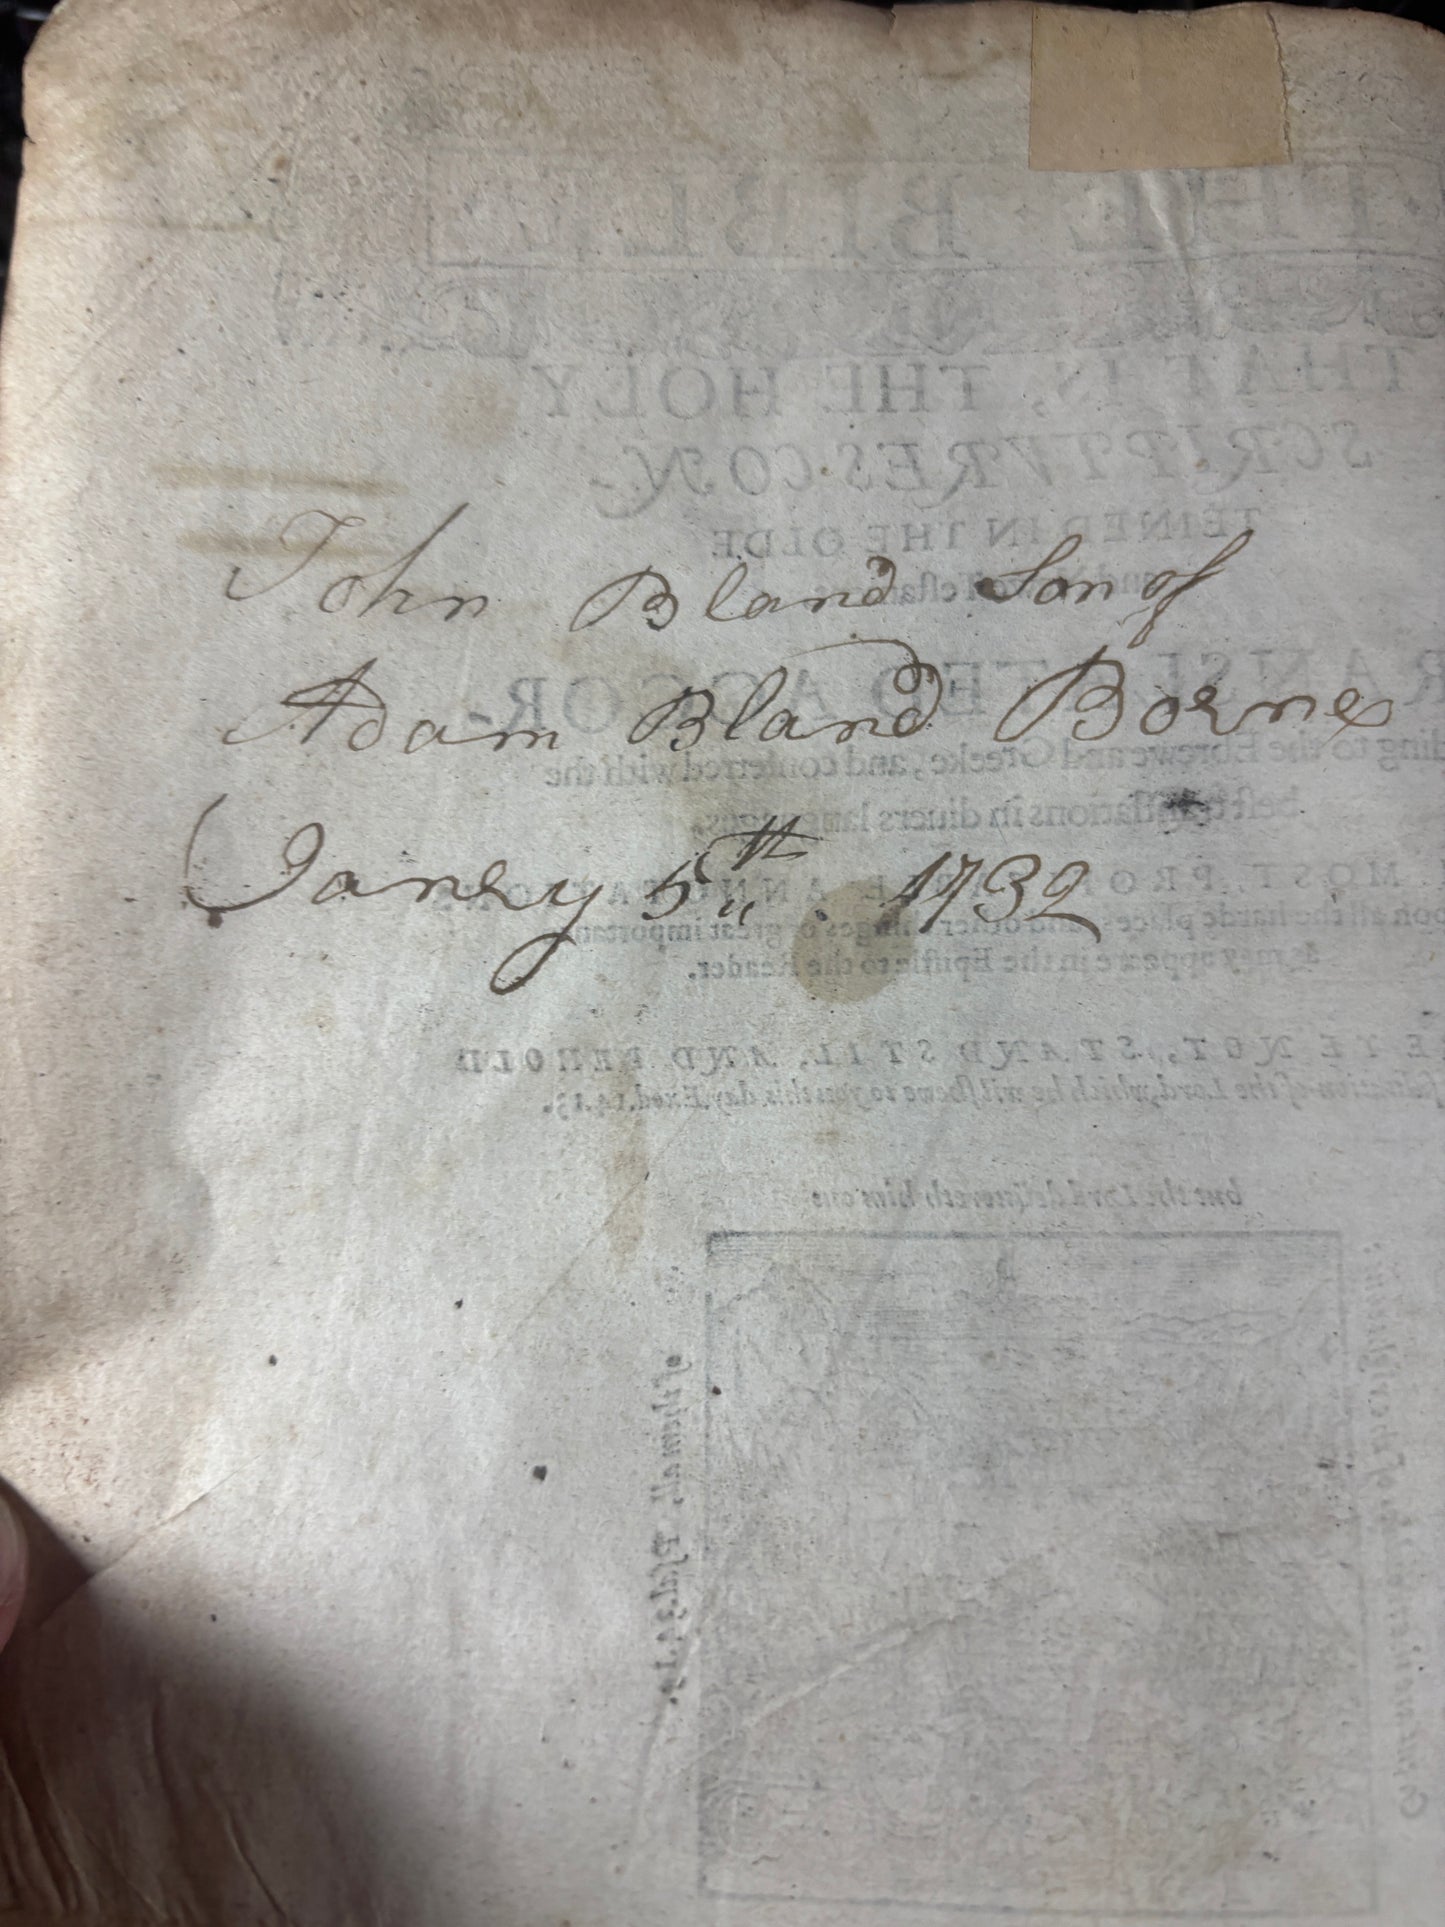 THE BIBLE
THAT IS, THE HOLY
SCRIPTVRES CON-
TEINED IN THE OLDE
John Bland Son of
Adam Bland Borne
TRANSLATED ACCOR-
ding to the Ebrewe and Greeke, and conferred with the
best translations in diuers languages.
Janry 5th 1732
MOST PROFITABLE ANNOTATIONS
vpon all the harde places, and other things of great importance
as may appeare in the Epistle to the Reader.
FEARE YE NOT, STAND STIL, AND BEHOLD
saluation of the Lord, which he wil shewe to you this day. Exod. 14.13.
but the Lord deliuereth him out
of them all, Psal. 34.19.